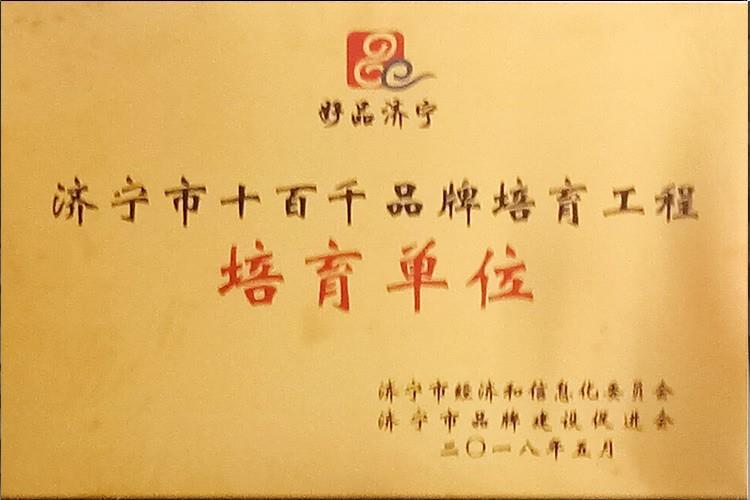 好品济宁
济宁市十百千品牌培育工程
培育单位
济宁市经济和信息化委员会
济宁市品牌建设促进会
二〇一八年五月